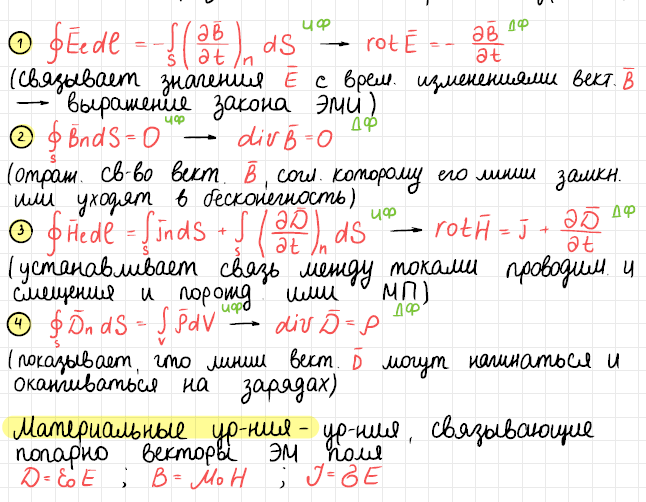 1 ∮ Ēₑdl = -∫ₛ(∂B̄/∂t)ₙ dS ИФ → rotĒ = - ∂B̄/∂t ДФ
(связывает значения Ē с врем. изменениями вект. B̄
→ выражение закона ЭМИ)
2 ∮ₛ B̄ndS = 0 ИФ → divB̄ = 0 ДФ
(отраж. св-во вект. B̄, согл. которому его линии замкн.
или уходят в бесконечность)
3 ∮ H̄ₑdl = ∫ₛ j̄ndS + ∫ₛ (∂D̄/∂t)ₙ dS ИФ → rotH̄ = j̄ + ∂D̄/∂t ДФ
(устанавливает связь между токами проводим. и
смещения и порожд. ими МП)
4 ∮ₛ D̄ₙ dS = ∫ᵥ ρ̄dV ИФ → div D̄ = ρ ДФ
(показывает, что линии вект. D̄ могут начинаться и
оканчиваться на зарядах)
Материальные ур-ния - ур-ния, связывающие
попарно векторы ЭМ поля
D = ε₀E ; B = μ₀H ; J = σE